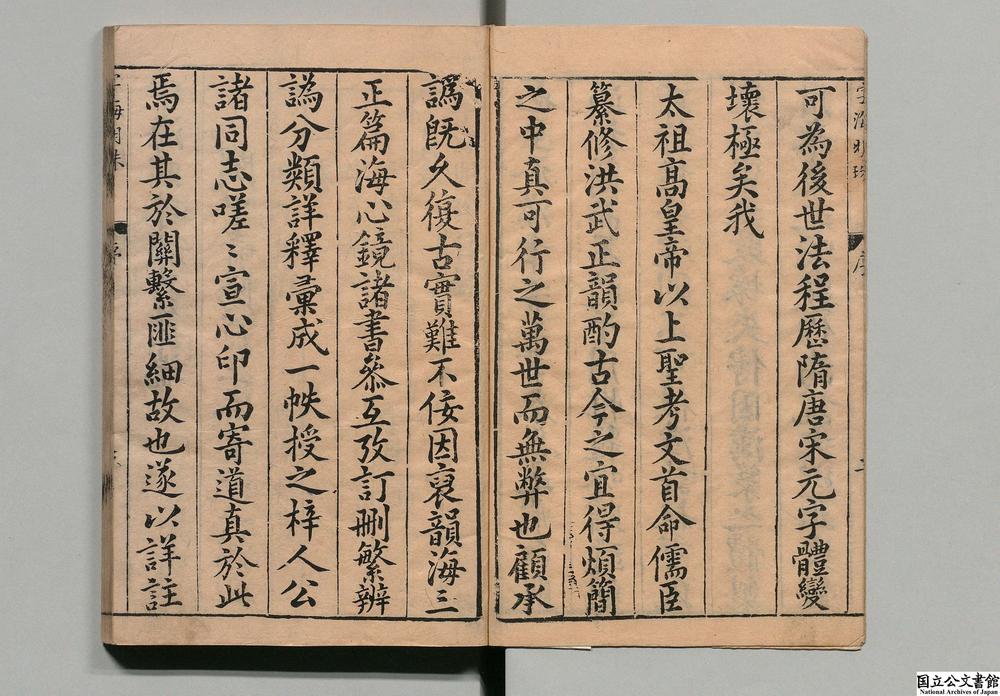 可為後世法程歷隋唐宋元字體變
壞極矣我
太祖高皇帝以上聖考文首命儒臣
纂修洪武正韻酌古今之宜得煩簡
之中真可行之萬世而無弊也顧承
譌旣久復古實難不佞因裒韻海三
正篇海心鏡諸書叅互攷訂刪繁辨
譌分類詳釋彙成一帙授之梓人公
諸同志嗟〻宣心印而寄道真於此
焉在其於關繫匪細故也遂以詳註
序
序
国立公文書館
National Archives of Japan